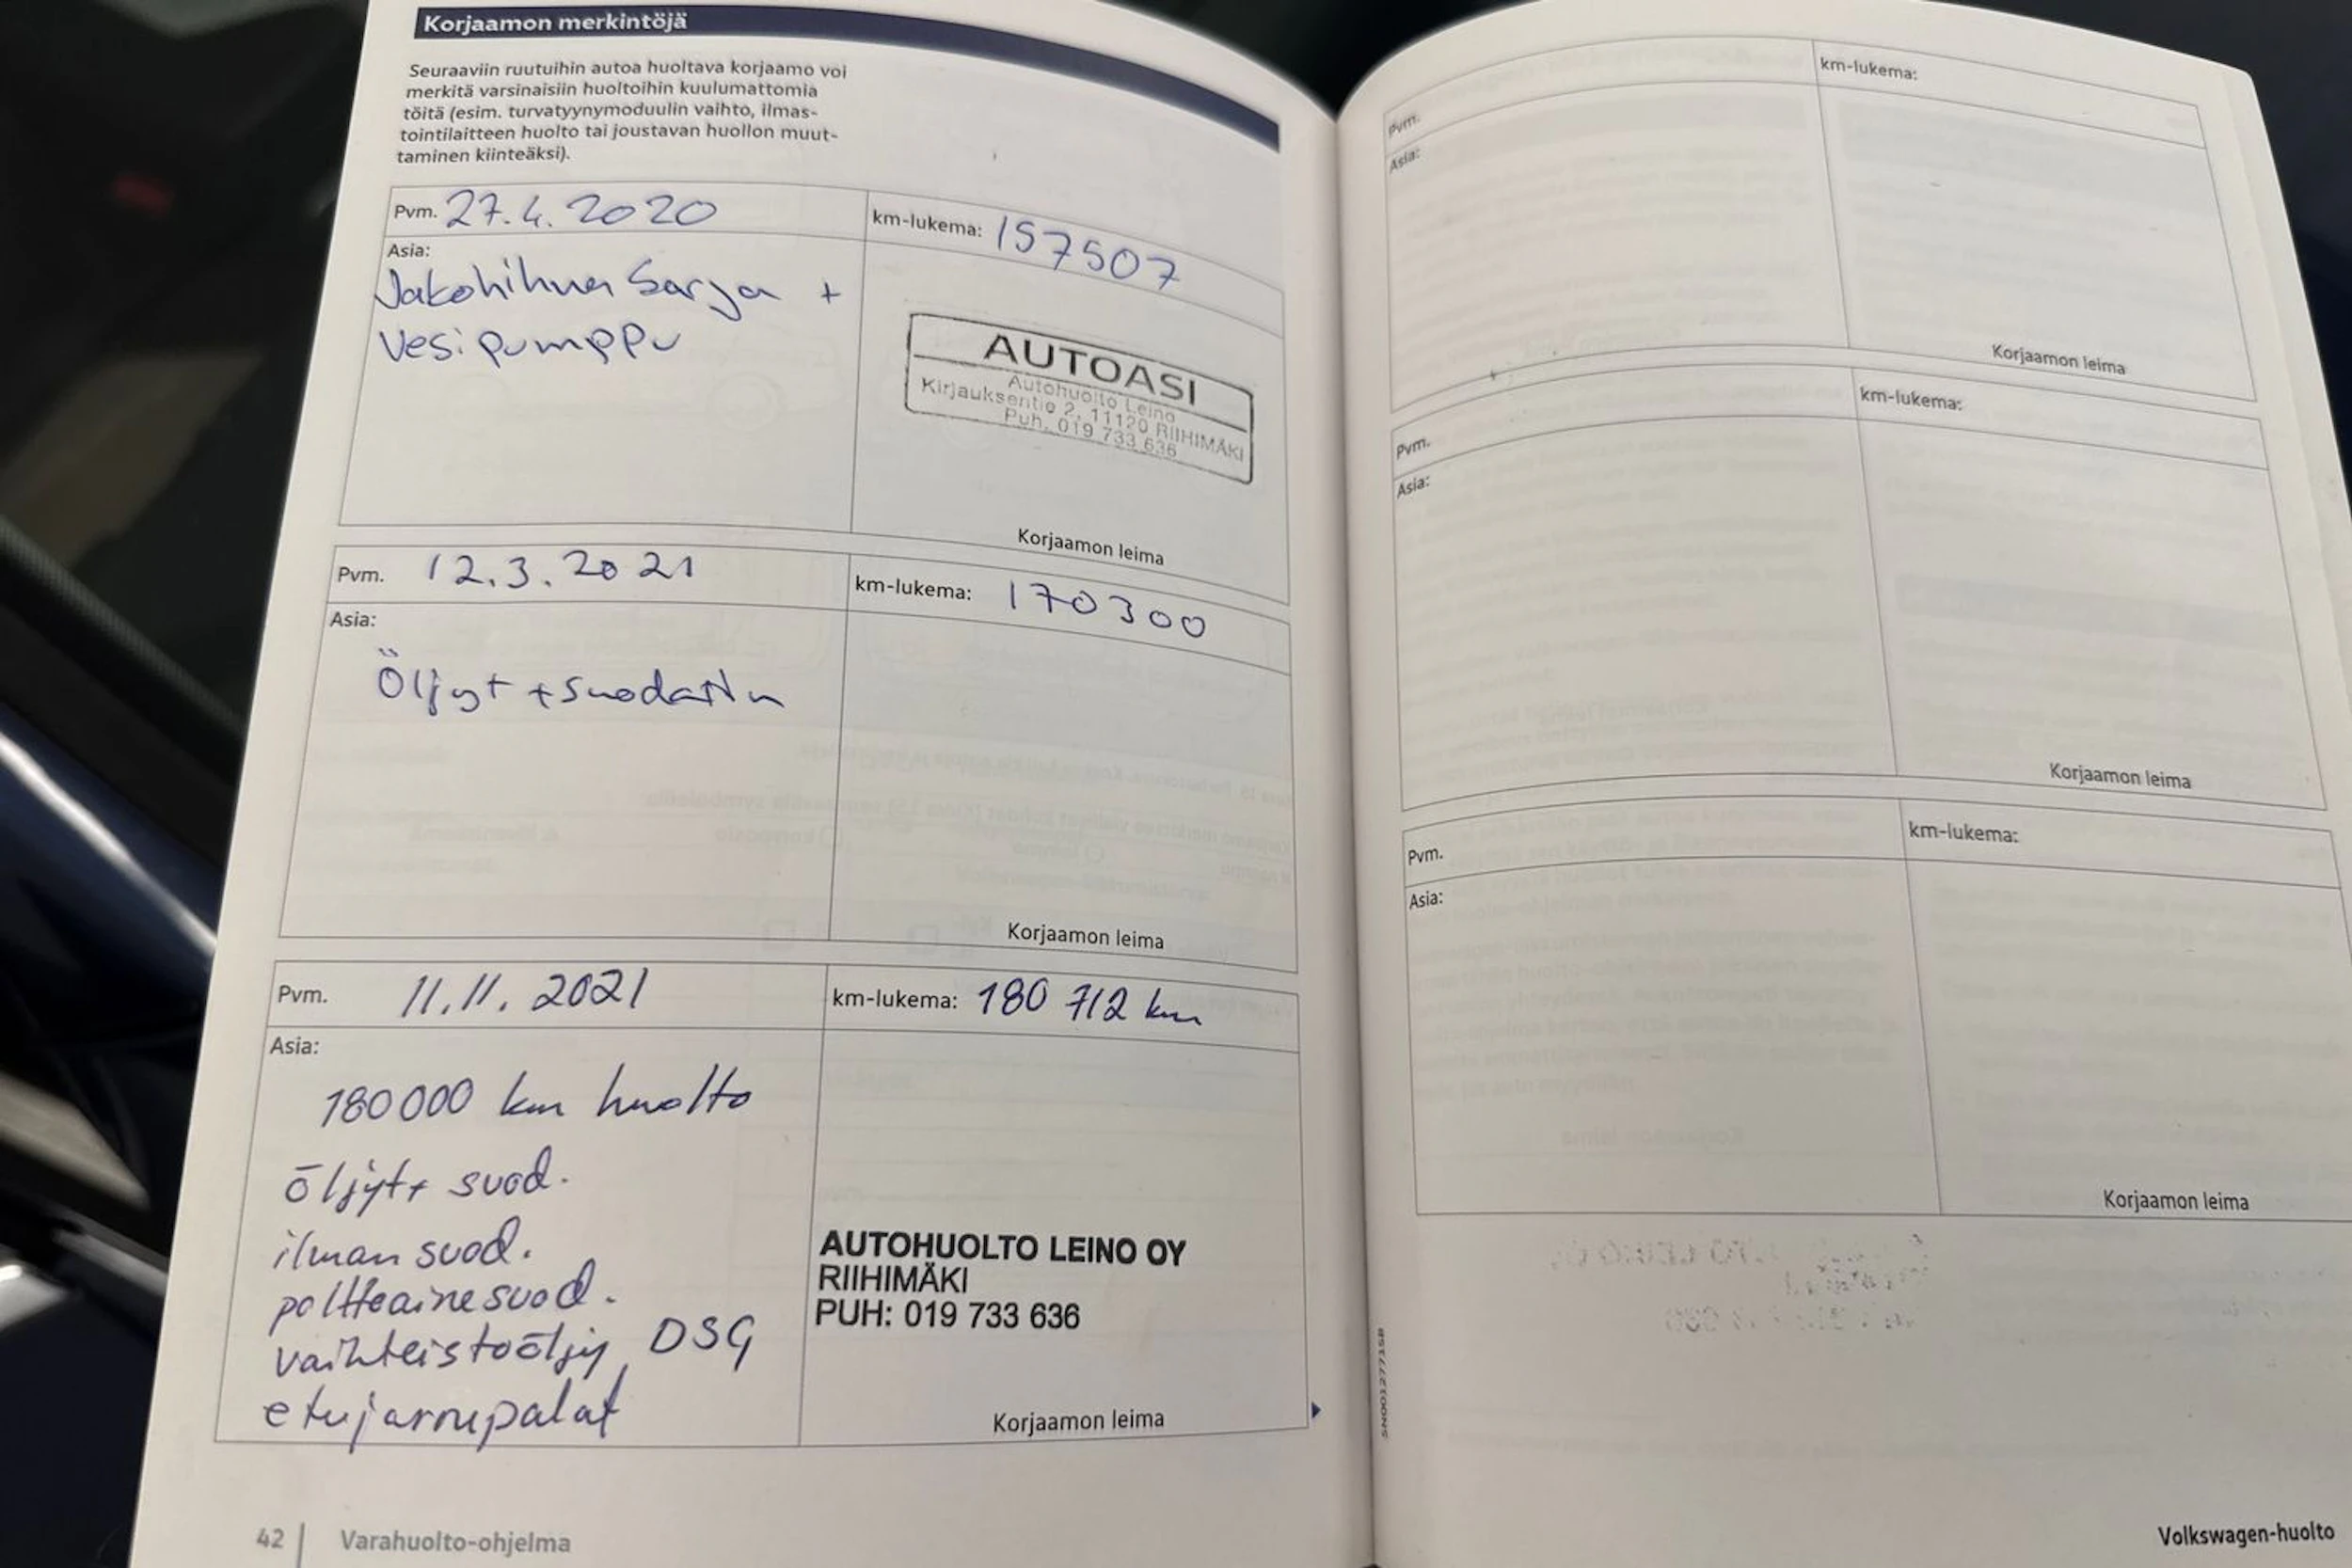 Korjaamon merkintöjä
Seuraaviin ruutuihin autoa huoltava korjaamo voi
merkitä varsinaisiin huoltoihin kuulumattomia
töitä (esim. turvatyynymoduulin vaihto, ilmas-
tointilaitteen huolto tai joustavan huollon muut-
taminen kiinteäksi).
Pvm. 27.4.2020
km-lukema: 157507
Asia:
Jakohihna Sarja +
Vesipumppu
AUTOASI
Autohuolto Leino
Kirjauksentie 2, 11120 RIIHIMÄKI
Puh. 019 733 636
Korjaamon leima
Pvm. 12.3.2021
km-lukema: 170300
Asia:
Öljyt + suodatin
Korjaamon leima
Pvm. 11.11.2021
km-lukema: 180 712 km
Asia:
180000 km huolto
öljyt+ suod.
ilman suod.
polttoainesuod.
vaihteistoöljy, DSG
etujarrupalat
AUTOHUOLTO LEINO OY
RIIHIMÄKI
PUH: 019 733 636
Korjaamon leima
42 | Varahuolto-ohjelma
Pvm.
km-lukema:
Asia:
Korjaamon leima
Pvm.
km-lukema:
Asia:
Korjaamon leima
Pvm.
km-lukema:
Asia:
Korjaamon leima
Volkswagen-huolto